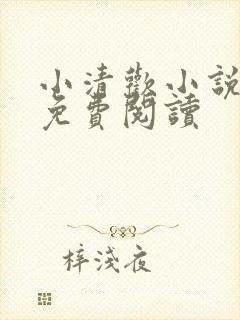 小清歡小說
免費閱讀
梓淺夜